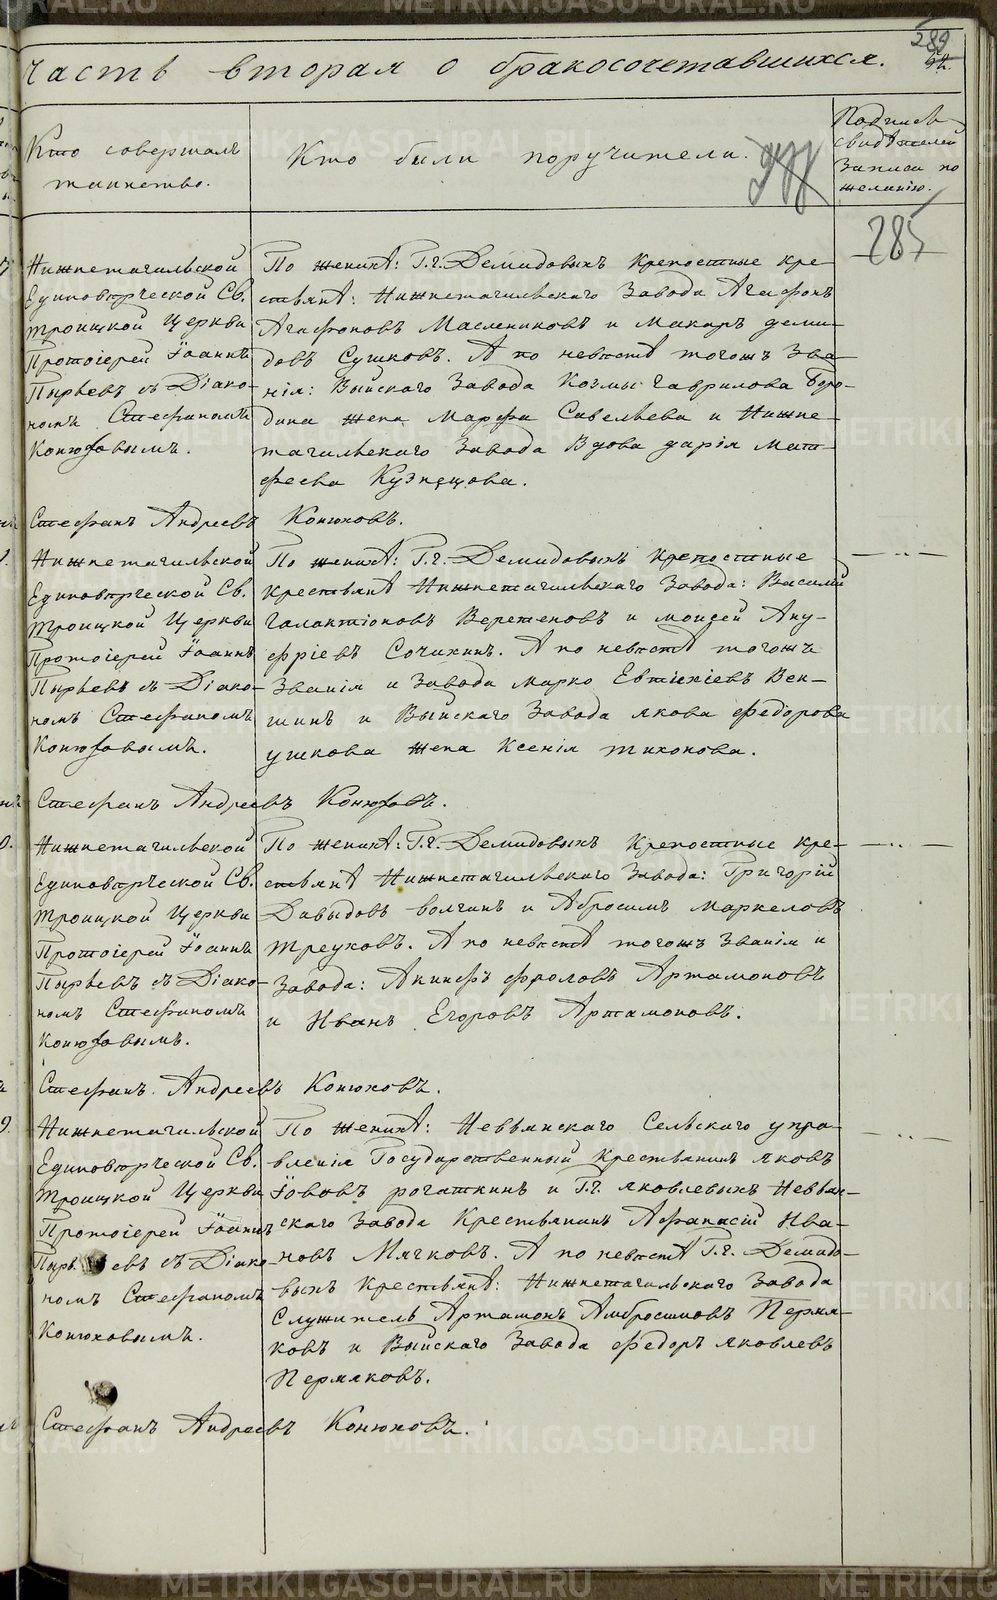 289
Часть вторая о бракосочетавшихся.
Кто совершалъ таинство.
Кто были поручители.
Подписи свидѣтелей записи по желанію.
285
Нижнетагильской
Единовѣрческой Св.
Троицкой Церкви
Протоіерей Іоаннъ
Пырьевъ съ Діако-
номъ Стефаномъ
Конюховымъ.
По женихѣ: Г.г. Демидовыхъ крепостные кре-
стьянѣ: Нижнетагильскаго Завода Агафонъ
Агафоновъ Маслениковъ и Макаръ деми-
довъ Сушковъ. А по невѣстѣ тогожъ зва-
нія: Выйскаго Завода Козмы Гаврилова Боро-
дина жена Марфа Савельева и Нижне-
тагильскаго Завода Вдова дарія Мат-
феева Кузнецова.
Стефанъ Андреевъ Конюховъ.
Нижнетагильской
Единовѣрческой Св.
Троицкой Церкви
Протоіерей Іоаннъ
Пырьевъ съ Діако-
номъ Стефаномъ
Конюховымъ.
По женихѣ: Г.г. Демидовыхъ крепостные
крестьянѣ Нижнетагильскаго Завода: Василій
Галактіоновъ Веретеновъ и моисей Ану-
фріевъ Сочихинъ. А по невѣстѣ тогожъ
Званія и Завода Марко Евтихіевъ Век-
шинъ и Выйскаго Завода якова федорова
ушкова жена Ксенія тихонова.
Стефанъ Андреевъ Конюховъ.
Нижнетагильской
Единовѣрческой Св.
Троицкой Церкви
Протоіерей Іоаннъ
Пырьевъ съ Діако-
номъ Стефаномъ
Конюховымъ.
По женихѣ: Г.г. Демидовыхъ Крепостные кре-
стьянѣ Нижнетагильскаго Завода: Григорій
Давыдовъ волгинъ и Абросимъ Маркеловъ
Треуховъ. А по невѣстѣ тогожъ Званія и
Завода: Акинфъ фроловъ Артамоновъ
и Иванъ Егоровъ Артамоновъ.
Стефанъ Андреевъ Конюховъ.
Нижнетагильской
Единовѣрческой Св.
Троицкой Церкви
Протоіерей Іоаннъ
Пырьевъ съ Діако-
номъ Стефаномъ
Конюховымъ.
По женихѣ: Невьянскаго Сельскаго упра-
вленія Государственный Крестьянинъ яковъ
Іововъ рогаткинъ и Г.г. яковлевыхъ Невьян-
скаго Завода Крестьянинъ Афанасій Ива-
новъ Мягковъ. А по невѣстѣ Г.г. Демидо-
выхъ Крестьянѣ: Нижнетагильскаго Завода
Служитель Артамонъ Амбросимовъ Пермя-
ковъ и Выйскаго Завода федоръ яковлевъ
Пермяковъ.
Стефанъ Андреевъ Конюховъ.
METRIKI.GASO-URAL.RU